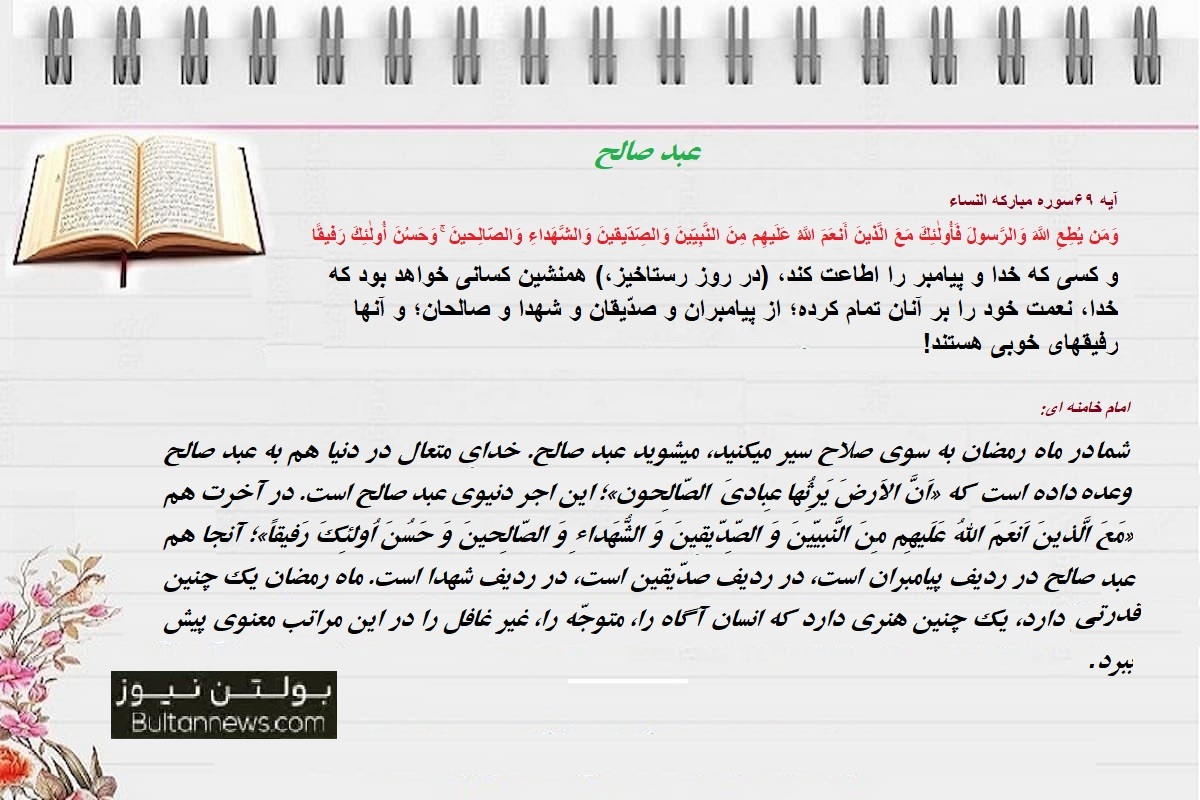 عبد صالح
آیه ۶۹سوره مبارکه النساء
وَمَن يُطِعِ اللَّهَ وَالرَّسولَ فَأُولٰئِكَ مَعَ الَّذينَ أَنعَمَ اللَّهُ عَلَيهِم مِنَ النَّبِيّينَ وَالصِّدّيقينَ وَالشُّهَداءِ وَالصّالِحينَ ۚ وَحَسُنَ أُولٰئِكَ رَفيقًا
و کسی که خدا و پیامبر را اطاعت کند، (در روز رستاخیز،) همنشین کسانی خواهد بود که
خدا، نعمت خود را بر آنان تمام کرده؛ از پیامبران و صدّیقان و شهدا و صالحان؛ و آنها
رفیقهای خوبی هستند!
امام خامنه ای:
شمادر ماه رمضان به سوی صلاح سیر میکنید، میشوید عبد صالح. خدایِ متعال در دنیا هم به عبد صالح
وعده داده است که «اَنَّ الاَرضَ یَرِثُها عِبادیَ الصّالِحون»؛ این اجر دنیوی عبد صالح است. در آخرت هم
«مَعَ الَّذینَ اَنعَمَ اللهُ عَلَیهِم مِنَ النَّبیّینَ وَ الصِّدّیقینَ وَ الشُّهَداءِ وَ الصّالِحینَ وَ حَسُنَ اُولئِکَ رَفیقاً»؛ آنجا هم
عبد صالح در ردیف پیامبران است، در ردیف صدّیقین است، در ردیف شهدا است. ماه رمضان یک چنین
قدرتی دارد، یک چنین هنری دارد که انسان آگاه را، متوجّه را، غیر غافل را در این مراتب معنوی پیش
ببرد.
بولتن نیوز
Bultannews.com